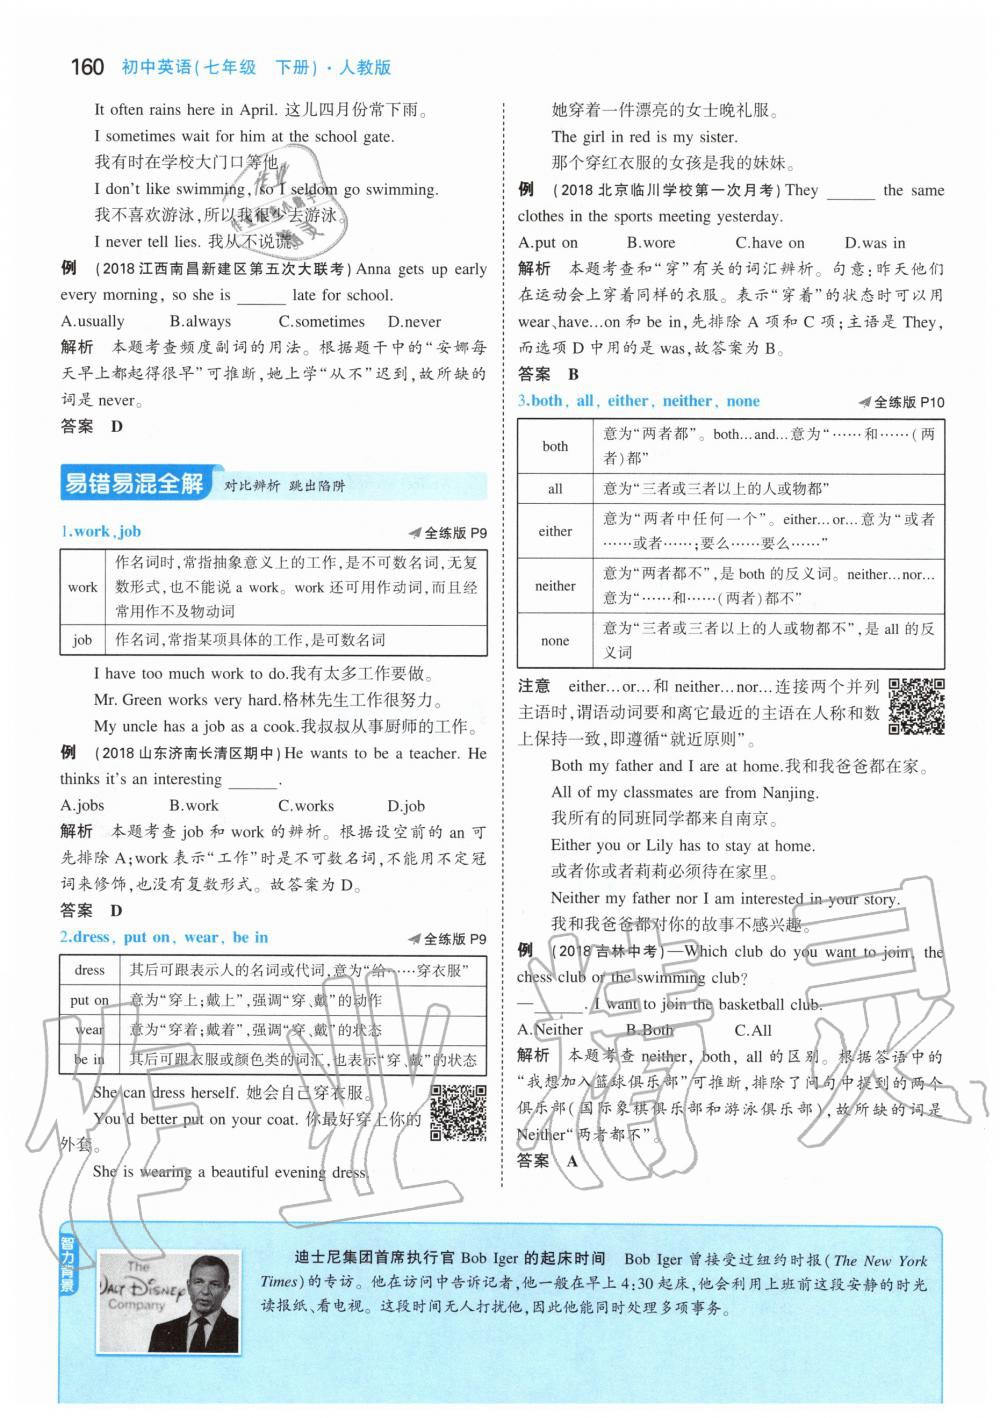 160 初中英语(七年级 下册)·人教版
It often rains here in April. 这儿四月份常下雨。
I sometimes wait for him at the school gate.
我有时在学校大门口等他。
I don't like swimming, so I seldom go swimming.
我不喜欢游泳,所以我很少去游泳。
I never tell lies. 我从不说谎。
例 (2018江西南昌新建区第五次大联考) Anna gets up early
every morning, so she is ______ late for school.
A.usually B.always C.sometimes D.never
解析 本题考查频度副词的用法。根据题干中的“安娜每
天早上都起得很早”可推断,她上学“从不”迟到,故所缺的
词是 never。
答案 D
易错易混全解 对比辨析 跳出陷阱
1.work,job 全练版 P9
work 作名词时,常指抽象意义上的工作,是不可数名词,无复
数形式,也不能说 a work。work 还可用作动词,而且经
常用作不及物动词
job 作名词,常指某项具体的工作,是可数名词
I have too much work to do.我有太多工作要做。
Mr. Green works very hard.格林先生工作很努力。
My uncle has a job as a cook.我叔叔从事厨师的工作。
例 (2018山东济南长清区期中) He wants to be a teacher. He
thinks it's an interesting ______.
A.jobs B.work C.works D.job
解析 本题考查 job 和 work 的辨析。根据设空前的 an 可
先排除 A;work 表示“工作”时是不可数名词,不能用不定冠
词来修饰,也没有复数形式。故答案为 D。
答案 D
2.dress, put on, wear, be in 全练版 P9
dress 其后可跟表示人的名词或代词,意为“给……穿衣服”
put on 意为“穿上;戴上”,强调“穿、戴”的动作
wear 意为“穿着;戴着”,强调“穿、戴”的状态
be in 其后可跟衣服或颜色类的词汇,也表示“穿、戴”的状态
She can dress herself. 她会自己穿衣服。
You'd better put on your coat. 你最好穿上你的
外套。
She is wearing a beautiful evening dress.
她穿着一件漂亮的女士晚礼服。
The girl in red is my sister.
那个穿红衣服的女孩是我的妹妹。
例 (2018北京临川学校第一次月考) They ______ the same
clothes in the sports meeting yesterday.
A.put on B.wore C.have on D.was in
解析 本题考查和“穿”有关的词汇辨析。句意:昨天他们
在运动会上穿着同样的衣服。表示“穿着”的状态时可以用
wear、have…on 和 be in,先排除 A 项和 C 项;主语是 They,
而选项 D 中用的是 was,故答案为 B。
答案 B
3.both, all, either, neither, none 全练版 P10
both 意为“两者都”。both…and…意为“……和……(两
者)都”
all 意为“三者或三者以上的人或物都”
either 意为“两者中任何一个”。either…or…意为“或者
……或者……;要么……要么……”
neither 意为“两者都不”,是 both 的反义词。neither…nor…
意为“……和……(两者)都不”
none 意为“三者或三者以上的人或物都不”,是 all 的反
义词
注意 either…or…和 neither…nor…连接两个并列
主语时,谓语动词要和离它最近的主语在人称和数
上保持一致,即遵循“就近原则”。
Both my father and I are at home.我和我爸爸都在家。
All of my classmates are from Nanjing.
我所有的同班同学都来自南京。
Either you or Lily has to stay at home.
或者你或者莉莉必须待在家里。
Neither my father nor I am interested in your story.
我和我爸爸都对你的故事不感兴趣。
例 (2018吉林中考)—Which club do you want to join, the
chess club or the swimming club?
—______. I want to join the basketball club.
A.Neither B.Both C.All
解析 本题考查 neither, both, all 的区别。根据答语中的
“我想加入篮球俱乐部”可推断,排除了问句中提到的两个
俱乐部(国际象棋俱乐部和游泳俱乐部),故所缺的词是
Neither“两者都不”。
答案 A
智力背景
The
WALT DISNEY
Company
迪士尼集团首席执行官 Bob Iger 的起床时间 Bob Iger 曾接受过纽约时报(The New York
Times)的专访。他在访问中告诉记者,他一般在早上 4:30 起床,他会利用上班前这段安静的时光
读报纸、看电视。这段时间无人打扰他,因此他能同时处理多项事务。
作业精灵